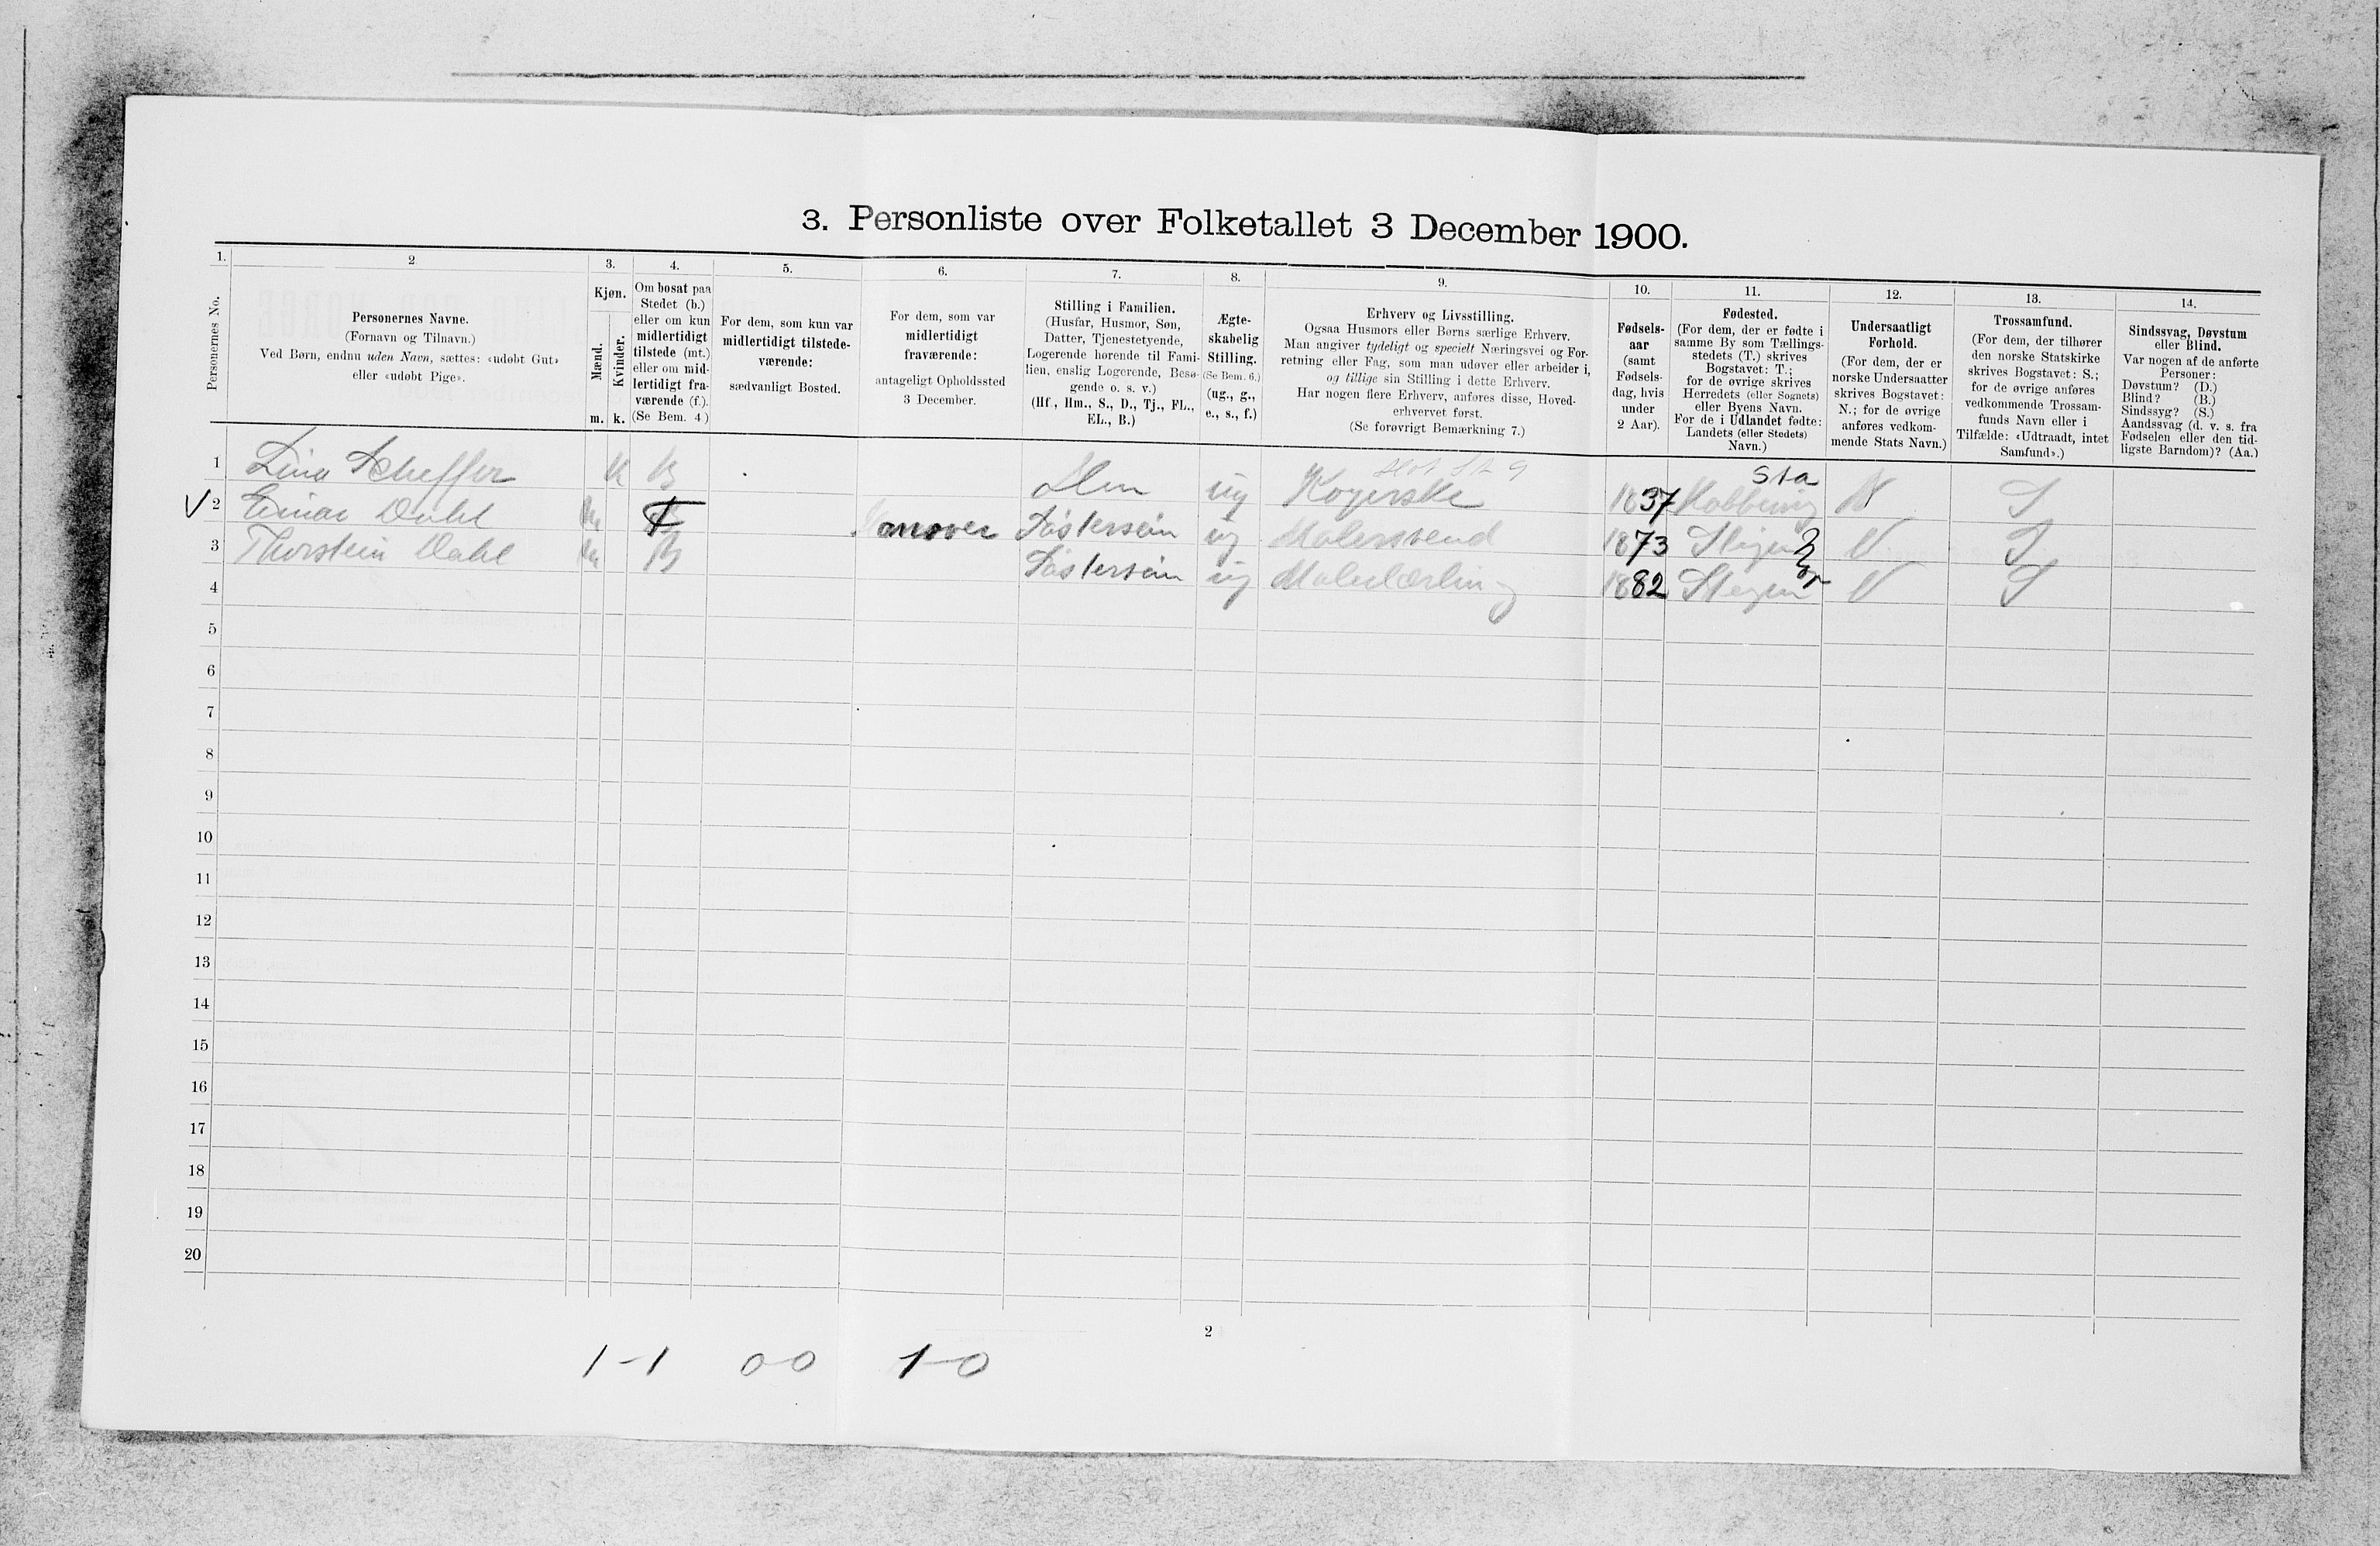 3. Personliste over Folketallet 3 December 1900.
1. 2 3. 4. 5. 6. 7. 8. 9. 10. 11. 12. 13. 14.
Personernes No.
Personernes Navne.
(Fornavn og Tilnavn.)
Ved Børn, endnu uden Navn, sættes: «udøbt Gut»
eller «udøbt Pige».
Kjøn.
Mænd. Kvinder.
m. k.
Om bosat paa
Stedet (b.)
eller om kun
midlertidigt
tilstede (mt.)
eller om mid-
lertidigt fra-
værende (f.).
(Se Bem. 4)
For dem, som kun var
midlertidigt tilstede-
værende:
sædvanligt Bosted.
For dem, som var
midlertidigt
fraværende:
antageligt Opholdssted
3 December.
Stilling i Familien.
(Husfar, Husmor, Søn,
Datter, Tjenestetyende,
Logerende hørende til Fami-
lien, enslig Logerende, Besø-
gende o. s. v.)
(Hf., Hm., S., D., Tj., FL.,
EL., B.)
Ægte-
skabelig
Stilling.
(Se Bem. 6.)
(ug., g.,
e., s., f.)
Erhverv og Livsstilling.
Ogsaa Husmors eller Børns særlige Erhverv.
Man angiver tydeligt og specielt Næringsvei og For-
retning eller Fag, som man udøver eller arbeider i,
og tillige sin Stilling i dette Erhverv.
Har nogen flere Erhverv, anføres disse, Hoved-
erhvervet først.
(Se forøvrigt Bemærkning 7.)
Fødsels-
aar
(samt
Fødsels-
dag, hvis
under
2 Aar).
Fødested.
(For dem, der er fødte i
samme By som Tællings-
stedets (T.) skrives
Bogstavet: T.;
for de øvrige skrives
Herredets (eller Sognets)
eller Byens Navn.
For de i Udlandet fødte:
Landets (eller Stedets)
Navn.)
Undersaatligt
Forhold.
(For dem, der er
norske Undersaatter
skrives Bogstavet:
N.; for de øvrige
anføres vedkom-
mende Stats Navn.)
Trossamfund.
(For dem, der tilhører
den norske Statskirke
skrives Bogstavet: S.;
for de øvrige anføres
vedkommende Trossam-
funds Navn eller i
Tilfælde: «Udtraadt, intet
Samfund».)
Sindssvag, Døvstum
eller Blind.
Var nogen af de anførte
Personer:
Døvstum? (D.)
Blind? (B.)
Sindssyg? (S.)
Aandssvag (d. v. s. fra
Fødselen eller den tid-
ligste Barndom)? (Aa.)
1 Lina Scheffer K B Hm ug Kogerske 1837 N S
2 Einar Dahl M F Søstersøn ug Malersvend 1873 Stegen N S
3 Thorstein Dahl M B Søstersøn ug Malerlærling 1882 Stegen N S
4
5
6
7
8
9
10
11
12
13
14
15
16
17
18
19
20
2
1-1 0-0 1-0